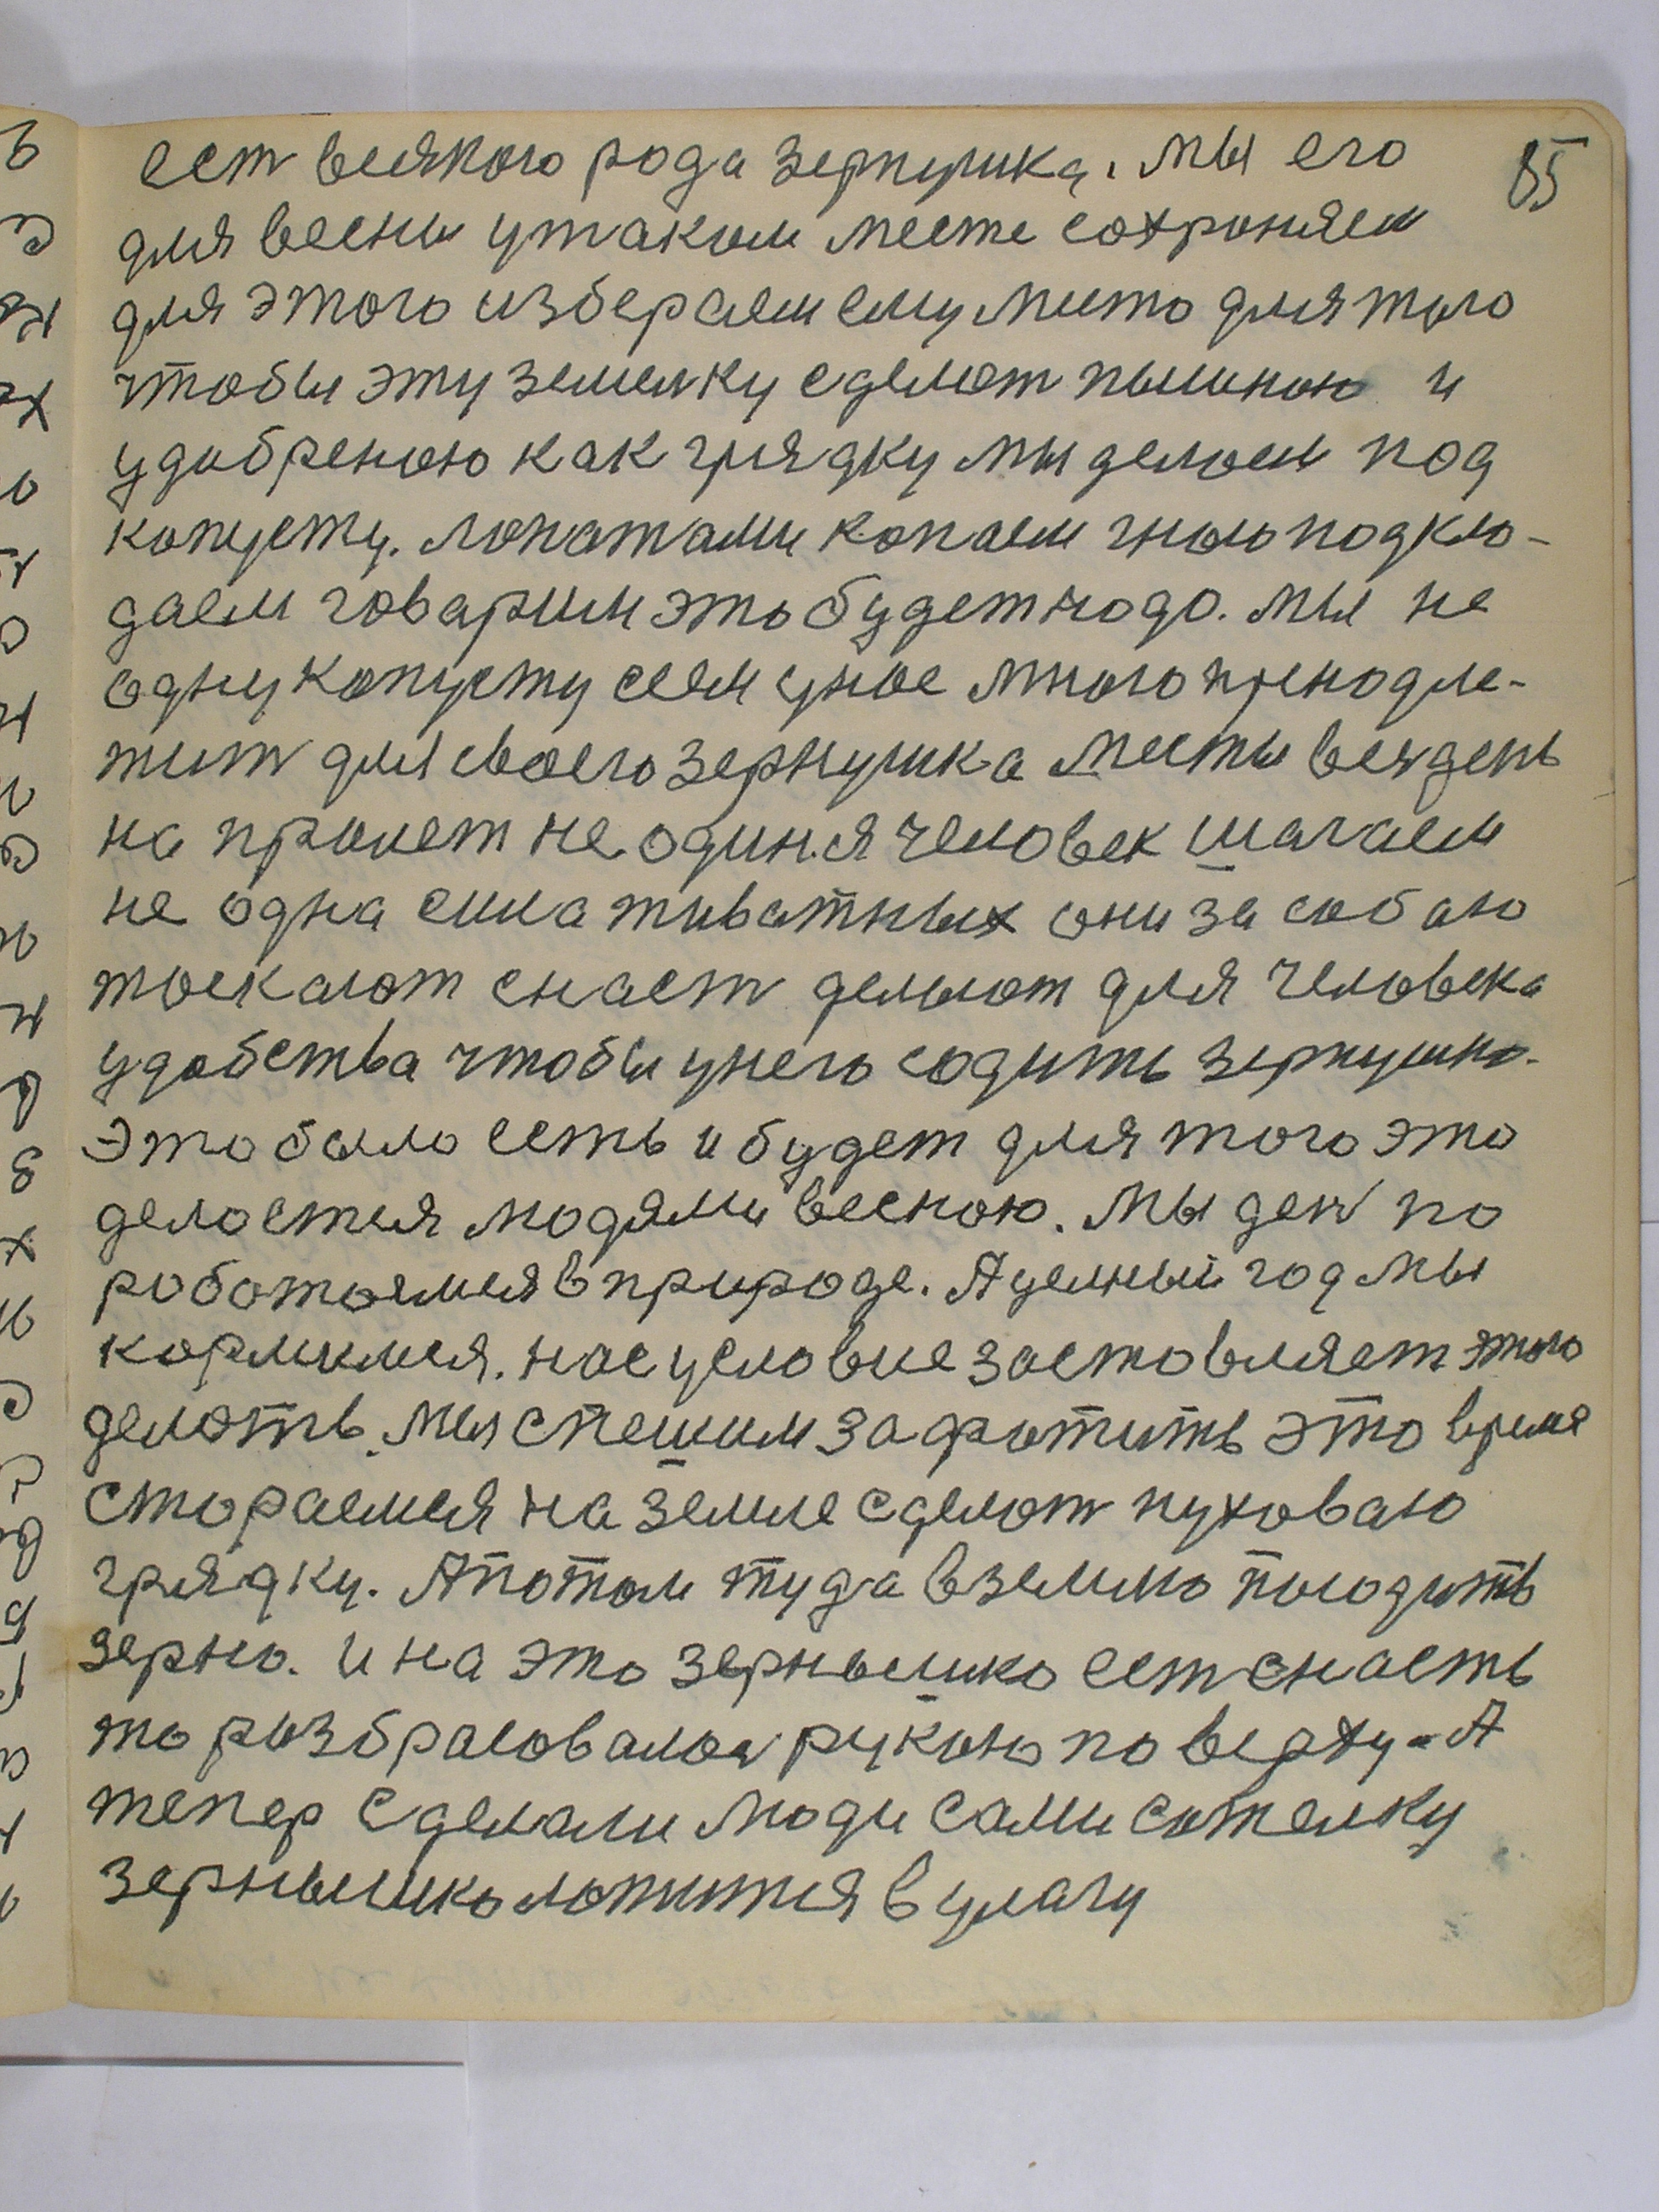 85
ест всякого рода зернушка. мы его
для весны у таком месте сохроняем
для этого избераем ему место для того
чтобы эту земелку сделат пышною и
удобреною как грядку мы делоем под
копусту. лопатами копаем гною подкло-
даем говарим это будет нодо. мы не
одну копусту сеем у нос много пренодле-
жит для своего зернушка месты вся день
на пролет не один я человек шагаем
не одна сила животных они за собаю
тоскают снаст делоют для человека
удобства чтобы у него содить зернушко.
Это было есть и будет для того это
делоется людями весною. Мы ден по
роботоемся в природе. А целный год мы
кормимся. нос условие зостовляет этого
делоть. Мы спешим захротить это время
стораемся на земле сделот пуховаю
грядку. А потом туда в землю посодить
зерно. и на это зернышко ест снасть
то розбрасовалос рукою по верху. А
тепер сделали люди сами сотелку
зернышко ложится в улагу